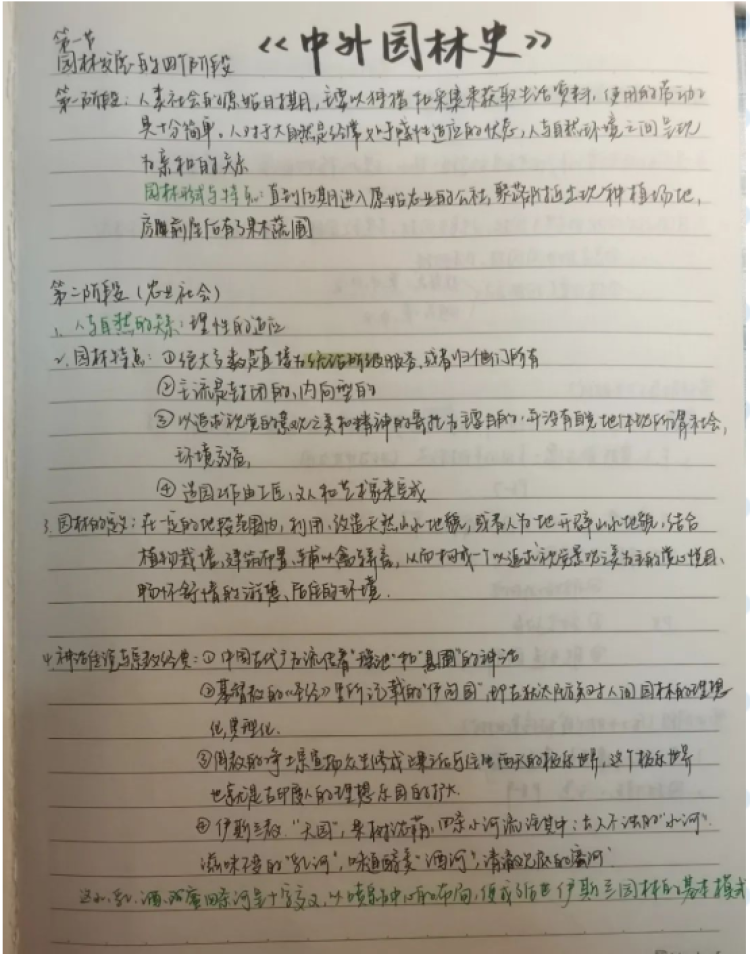 《中外园林史》
第一节
园林发展的四个阶段
第一阶段：人类社会的原始时期，主要以狩猎和采集来获取生活资料，使用的劳动工
具十分简单。人对于大自然是经常处于感性适应的状态，人与自然环境之间呈现
为亲和的关系
园林形式与特点：直到后期进入原始农业的公社，聚落附近出现种植场地，
房屋前后有了果木蔬圃
第二阶段（农业社会）
1、人与自然的关系：理性的适应
2、园林特点：①绝大多数是直接为统治阶级服务，或者归他们所有
②主流是封闭的、内向型的
③以追求视觉的景观之美和精神的寄托为主要目的，并没有自觉地体现所谓社会，
环境效益，
④造园工作由工匠，文人和艺术家来完成
3、园林的定义：在一定的地段范围内，利用、改造天然山水地貌，或者人为地开辟山水地貌，结合
植物栽培，建筑布置，辅以禽鸟养畜，从而构成一个以追求视觉景观之美为主的赏心悦目、
畅怀舒情的游憩、居住的环境．
4、神话传说与宗教经典：①中国古代广为流传着"瑶池"和"悬圃"的神话
②基督教的《圣经》里所记载的"伊甸园"，即古犹太民族对人间园林的理想
化，典理化．
③佛教的净土宗宣扬众生修成正果之后可往西天的极乐世界，这个极乐世界
也就是古印度人的理想乐园的扩大．
④伊斯兰教．"天园"，果树浓荫，四条小河流淌其中；
滋味不变的"乳河"，味道醇美"酒河"，清澈见底的"蜜河"
水、乳、酒、蜜四条河呈十字交叉，以喷泉为中心的布局，便成了后世伊斯兰园林的基本模式